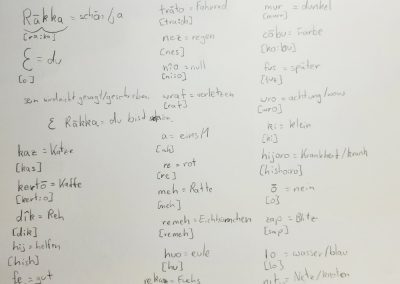 Rākka = schön/ja
[ra:ka]
Ɛ = du
[o]
sein wird nicht gesagt/geschrieben
Ɛ Rākka = du bist schön
kaz = Katze
[kas]
kertō = Kaffe
[kert:o]
dîk = Reh
[dik]
hij = helfen
[hish]
fe = gut
trāto = Fahrrad
nez = regen
[nes]
nîo = null
wraf = verletzen
[raf]
a = eines
re = rot
[re]
meh = Ratte
[meh]
remeh = Eichhörnchen
[remeh]
huo = eule
[hu]
= Fuchs
mur = dunkel
cōbu = Farbe
[ko:bu]
= später
wro = achtung/wow
[wro]
ki = klein
[ki]
hijoro = Krankheit/krank
[hishoro]
ō = nein
[o]
zap = Blitz
[sap]
lo = wasser/blau
[lo]
nit = Netz/knoten